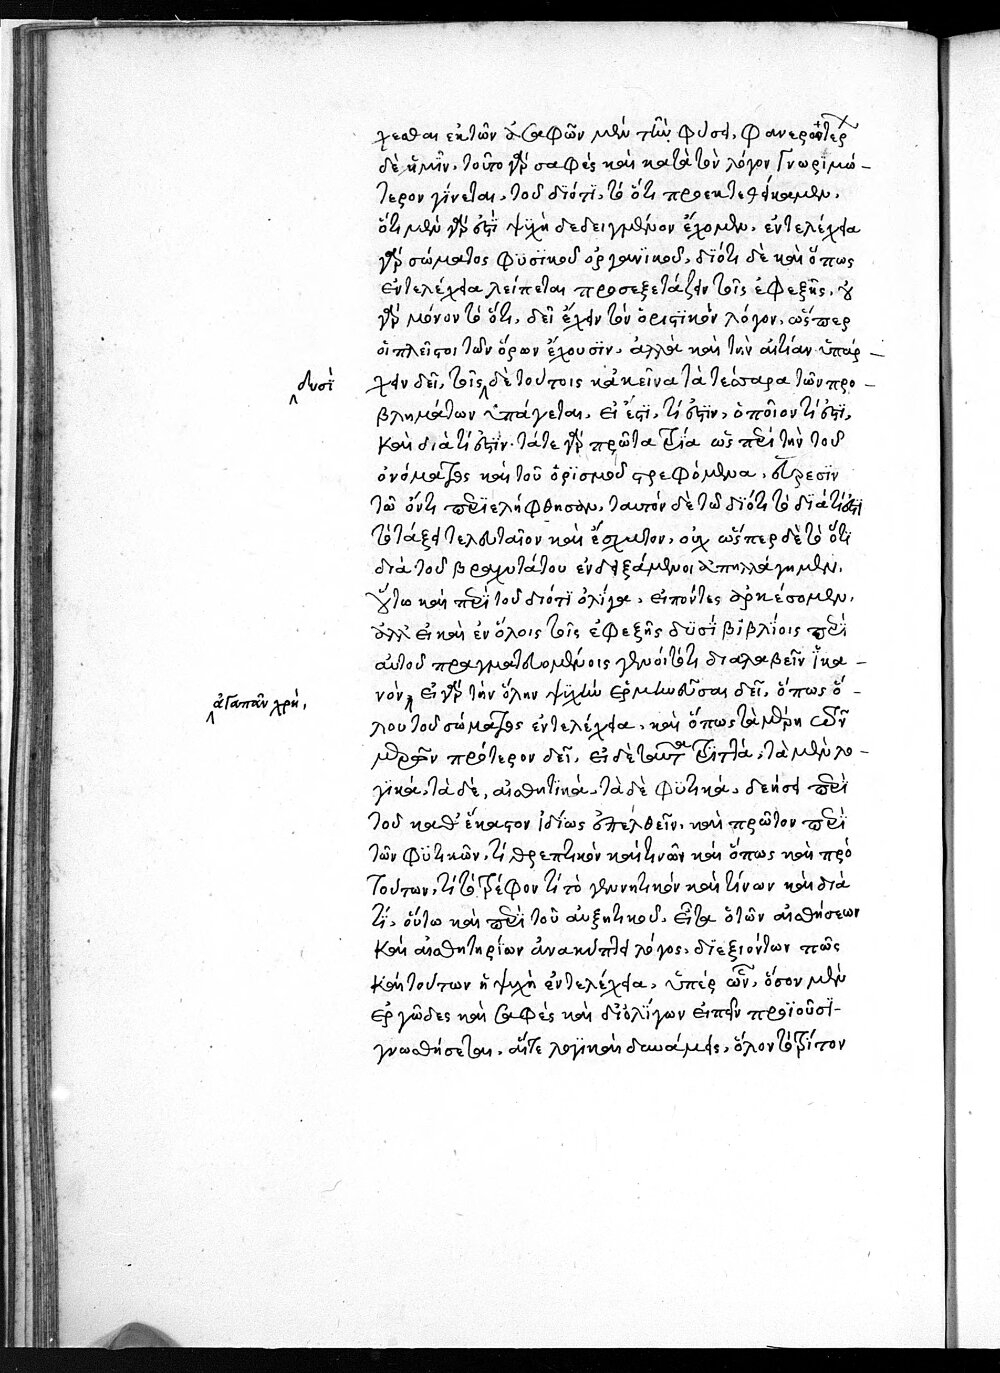 χεσθαι ἐκ τῶν ἀσαφῶν μὲν τῇ φύσει, φανερωτέρων
δὲ ἡμῖν. τοῦτο γὰρ σαφὲς καὶ κατὰ τὸν λόγον γνωριμώ-
τερον γίνεται, τοῦ διότι, τὸ ὅτι προεκτεθείκαμεν.
ὅτι μὲν γάρ ἐστι ψυχὴ δεδειγμένον ἔχομεν. ἐντελέχεια
γὰρ σώματος φυσικοῦ ὀργανικοῦ, διότι δὲ καὶ ὅπως
ἐντελέχεια λείπεται προσεξετάζειν τοῖς ἐφεξῆς. οὐ
γὰρ μόνον τὸ ὅτι, δεῖ ἔχειν τὸν ὁριστικὸν λόγον, ὥσπερ
οἱ πλεῖστοι τῶν ὅρων ἔχουσιν, ἀλλὰ καὶ τὴν αἰτίαν ὑπάρ-
δυσὶ
χειν δεῖ, τοῖς δὲ τούτοις κἀκεῖνα τὰ τέσσαρα τῶν προ-
βλημάτων ὑπάγεται, εἰ ἔστι, τί ἐστιν, ὁποῖον τί ἐστι,
καὶ διατί ἐστιν. τάτε γὰρ πρῶτα τρία ὡς περὶ τὴν τοῦ
ὀνόματος καὶ τοῦ ὁρισμοῦ στρεφόμενα,
τῷ ὄντι περιελήφθησαν, ταυτὸν δὲ τῷ διότι τὸ διατί ἐστι
τὸ τάξει τελευταῖον καὶ ἔσχατον, οὐχ ὥσπερ δὲ τὸ ὅτι
διὰ τοῦ βραχυτάτου ἐνδειξάμενοι ἀπηλλάγημεν,
οὕτω καὶ περὶ τοῦ διότι ὀλίγα εἰπόντες ἀρκέσομεν,
ἀλλ' εἰ καὶ ἐν ὅλοις τοῖς ἐφεξῆς δυσὶ βιβλίοις περὶ
αὐτοῦ πραγματευομένοις γένοιτό τι διαλαβεῖν ἱκα-
ἀγαπᾶν χρή,
νόν, εἰ γὰρ τὴν ὅλην ψυχὴν ἑρμηνεῦσαι δεῖ, ὅπως ὅ-
λου τοῦ σώματος ἐντελέχεια, καὶ ὅπως τὰ μέρη τῶν
μερῶν πρότερον δεῖ, εἰ δὲ ταῦτα τριττά, τὰ μὲν λο-
γικά, τὰ δὲ, αἰσθητικά, τὰ δὲ φυτικά, δεήσει περὶ
τοῦ καθ' ἕκαστον ἰδίως ἐπελθεῖν, καὶ πρῶτον περὶ
τῶν φυτικῶν, τί θρεπτικὸν καὶ τινῶν καὶ ὅπως καὶ πρὸ
τούτων, τί τὸ τρέφον τί τὸ γεννητικὸν καὶ τίνων καὶ διὰ
τί, οὕτω καὶ περὶ τοῦ αὐξητικοῦ, εἶτα ὁ τῶν αἰσθήσεων
καὶ αἰσθητηρίων ἀνακύπτει λόγος, διεξιόντων πῶς
καὶ τούτων ἡ ψυχὴ ἐντελέχεια, ὑπὲρ ὧν, ὅσον μὲν
ἐργῶδες καὶ σαφὲς καὶ δι' ὀλίγων εἰπεῖν προϊοῦσι
γνωσθήσεται, αἵτε λογικαὶ δυνάμεις, ὅλον τὸ τρίτον